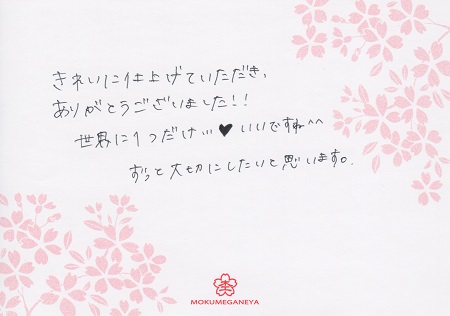 きれいに仕上げていただき、
ありがとうございました!!
世界に1つだけ…♥いいですね^^
ずっと大切にしたいと思います。
MOKUMEGANEYA